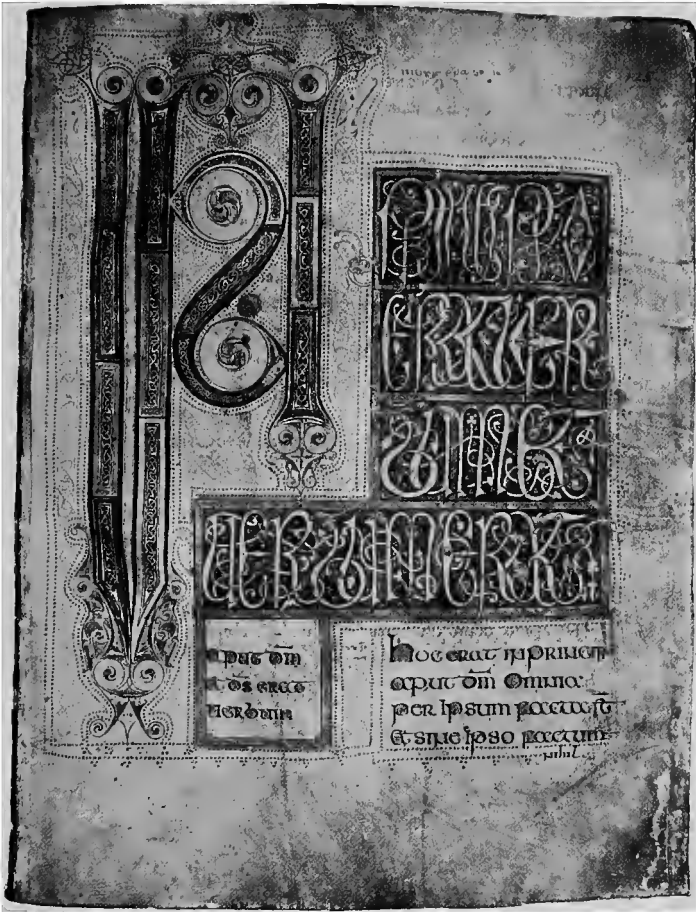 IN
PRINCIPIO
ERAT UER
BUM ET
UERBUM ERAT
aput dm̄
et d̄s erat
uerbum
hoc erat in principio
aput dm̄ omnia
per ipsum facta s̄t
et sine ipso factum
nihil